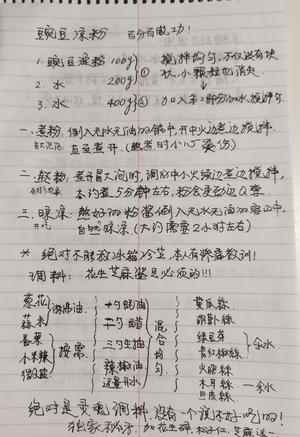 豌豆凉粉 百分百成功!
1. 豌豆淀粉 100g 搅拌均匀,不仅没有块
2. 水 200g ① 状,小颗粒也消失
3. 水 400g ② 加入第二部分的水,搅拌匀
一、煮粉:倒入无水无油的锅中,开中火边煮边搅拌
直至煮开(熬煮时小心烫伤)
二、熬粉:煮开冒大泡时,调到中小火续边煮边搅拌,
大约煮5分钟左右,粉会更劲道Q弹
三、晾凉:熬好的粉浆倒入无水无油的容器中,
自然晾凉(大约需要2小时左右)
* 绝对不能放冰箱冷藏,本人有惨痛教训!
调料:花生芝麻酱是必须的!!!
葱花 淋沸油 一勺蚝油 黄瓜丝
蒜末 二勺醋 混 胡萝卜丝
香菜 按需 三勺生抽 合 绿豆芽 余水
小米辣 辣椒油 均 青红椒丝
适量凉水 匀 火腿丝
木耳丝 余水
绝对是灵魂调料,没有一个说不好吃的!
独家秘方